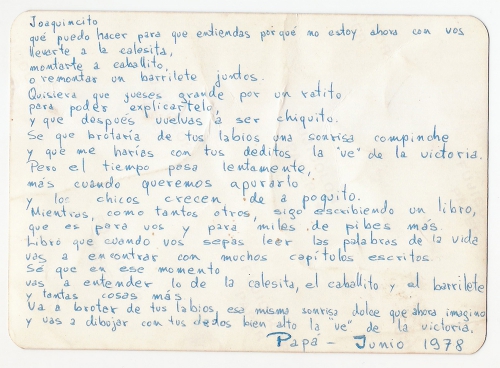 Joaquincito
qué puedo hacer para que entiendas por qué no estoy ahora con vos
llevarte a la calesita,
montarte a caballito,
o remontar un barrilete juntos.
Quisiera que fueses grande por un ratito
para poder explicartelo,
y que después vuelvas a ser chiquito.
Se que brotaría de tus labios una sonrisa compinche
y que me harías con tus deditos la "ve" de la victoria.
Pero el tiempo pasa lentamente,
más cuando queremos apurarlo
y los chicos crecen de a poquito.
Mientras, como tantos otros, sigo escribiendo un libro,
que es para vos y para miles de pibes más.
Libro que cuando vos sepas leer las palabras de la vida
vas a encontrar con muchos capítulos escritos.
Sé que en ese momento
vas a entender lo de la calesita, el caballito y el barrilete
y tantas cosas más
Va a brotar de tus labios esa misma sonrisa dulce que ahora imagino
y vas a dibujar con tus dedos bien alto la "ve" de la victoria.
Papá - Junio 1978